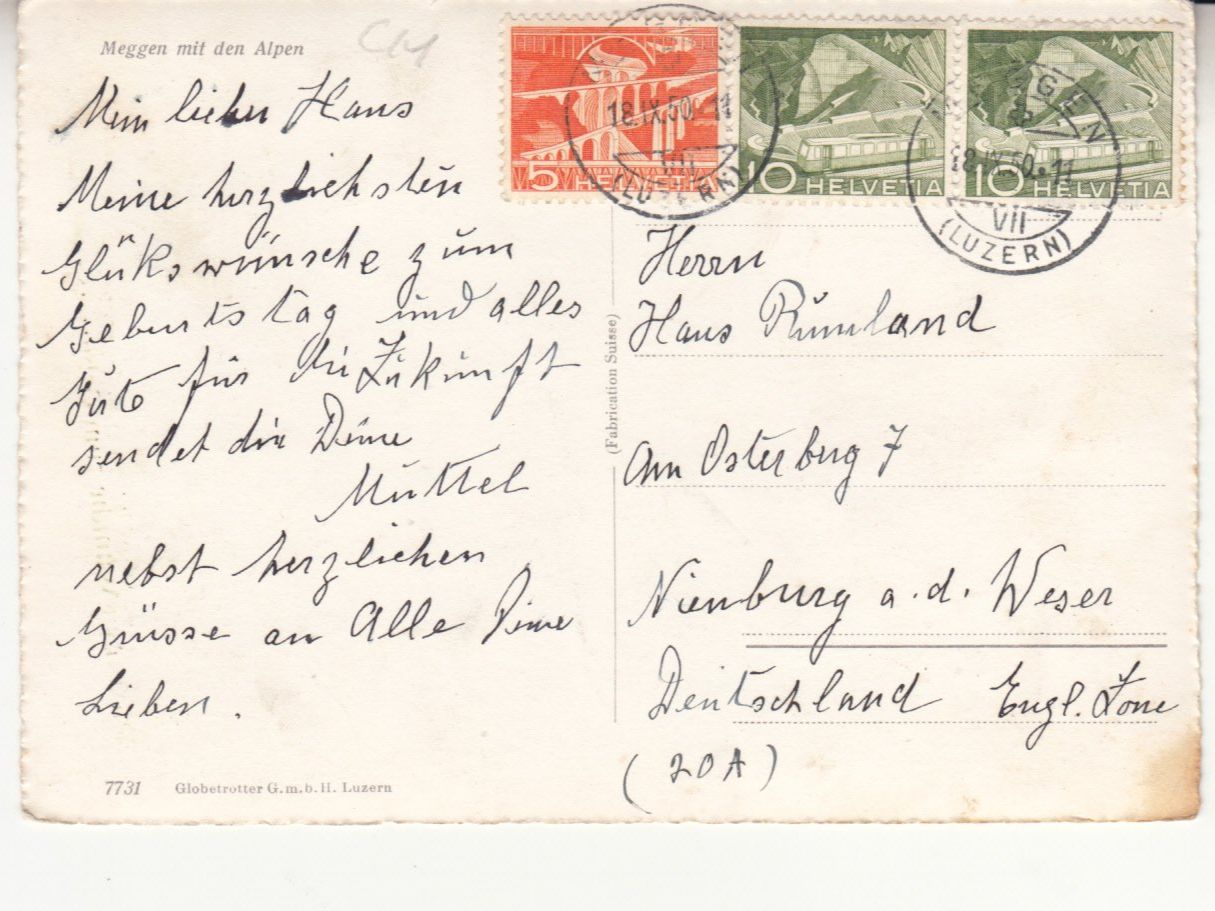 Meggen mit den Alpen
CH
Mein lieber Hans
Meine herzlichsten
Glükswünsche zum
Geburtstag und alles
Gute für die Zukunft
sendet dir Deine
Muttel
nebst herzlichen
Grüsse an Alle Deine
Lieben.
7731 Globetrotter G.m.b.H. Luzern
(Fabrication Suisse)
5 HELVETIA
10 HELVETIA
10 HELVETIA
18.IX.50.-11
VII
(LUZERN)
18.IX.50.-11
VII
(LUZERN)
Herrn
Hans Rumland
Am Osterberg 7
Nienburg a.d. Weser
Deutschland Engl. Zone
(20A)